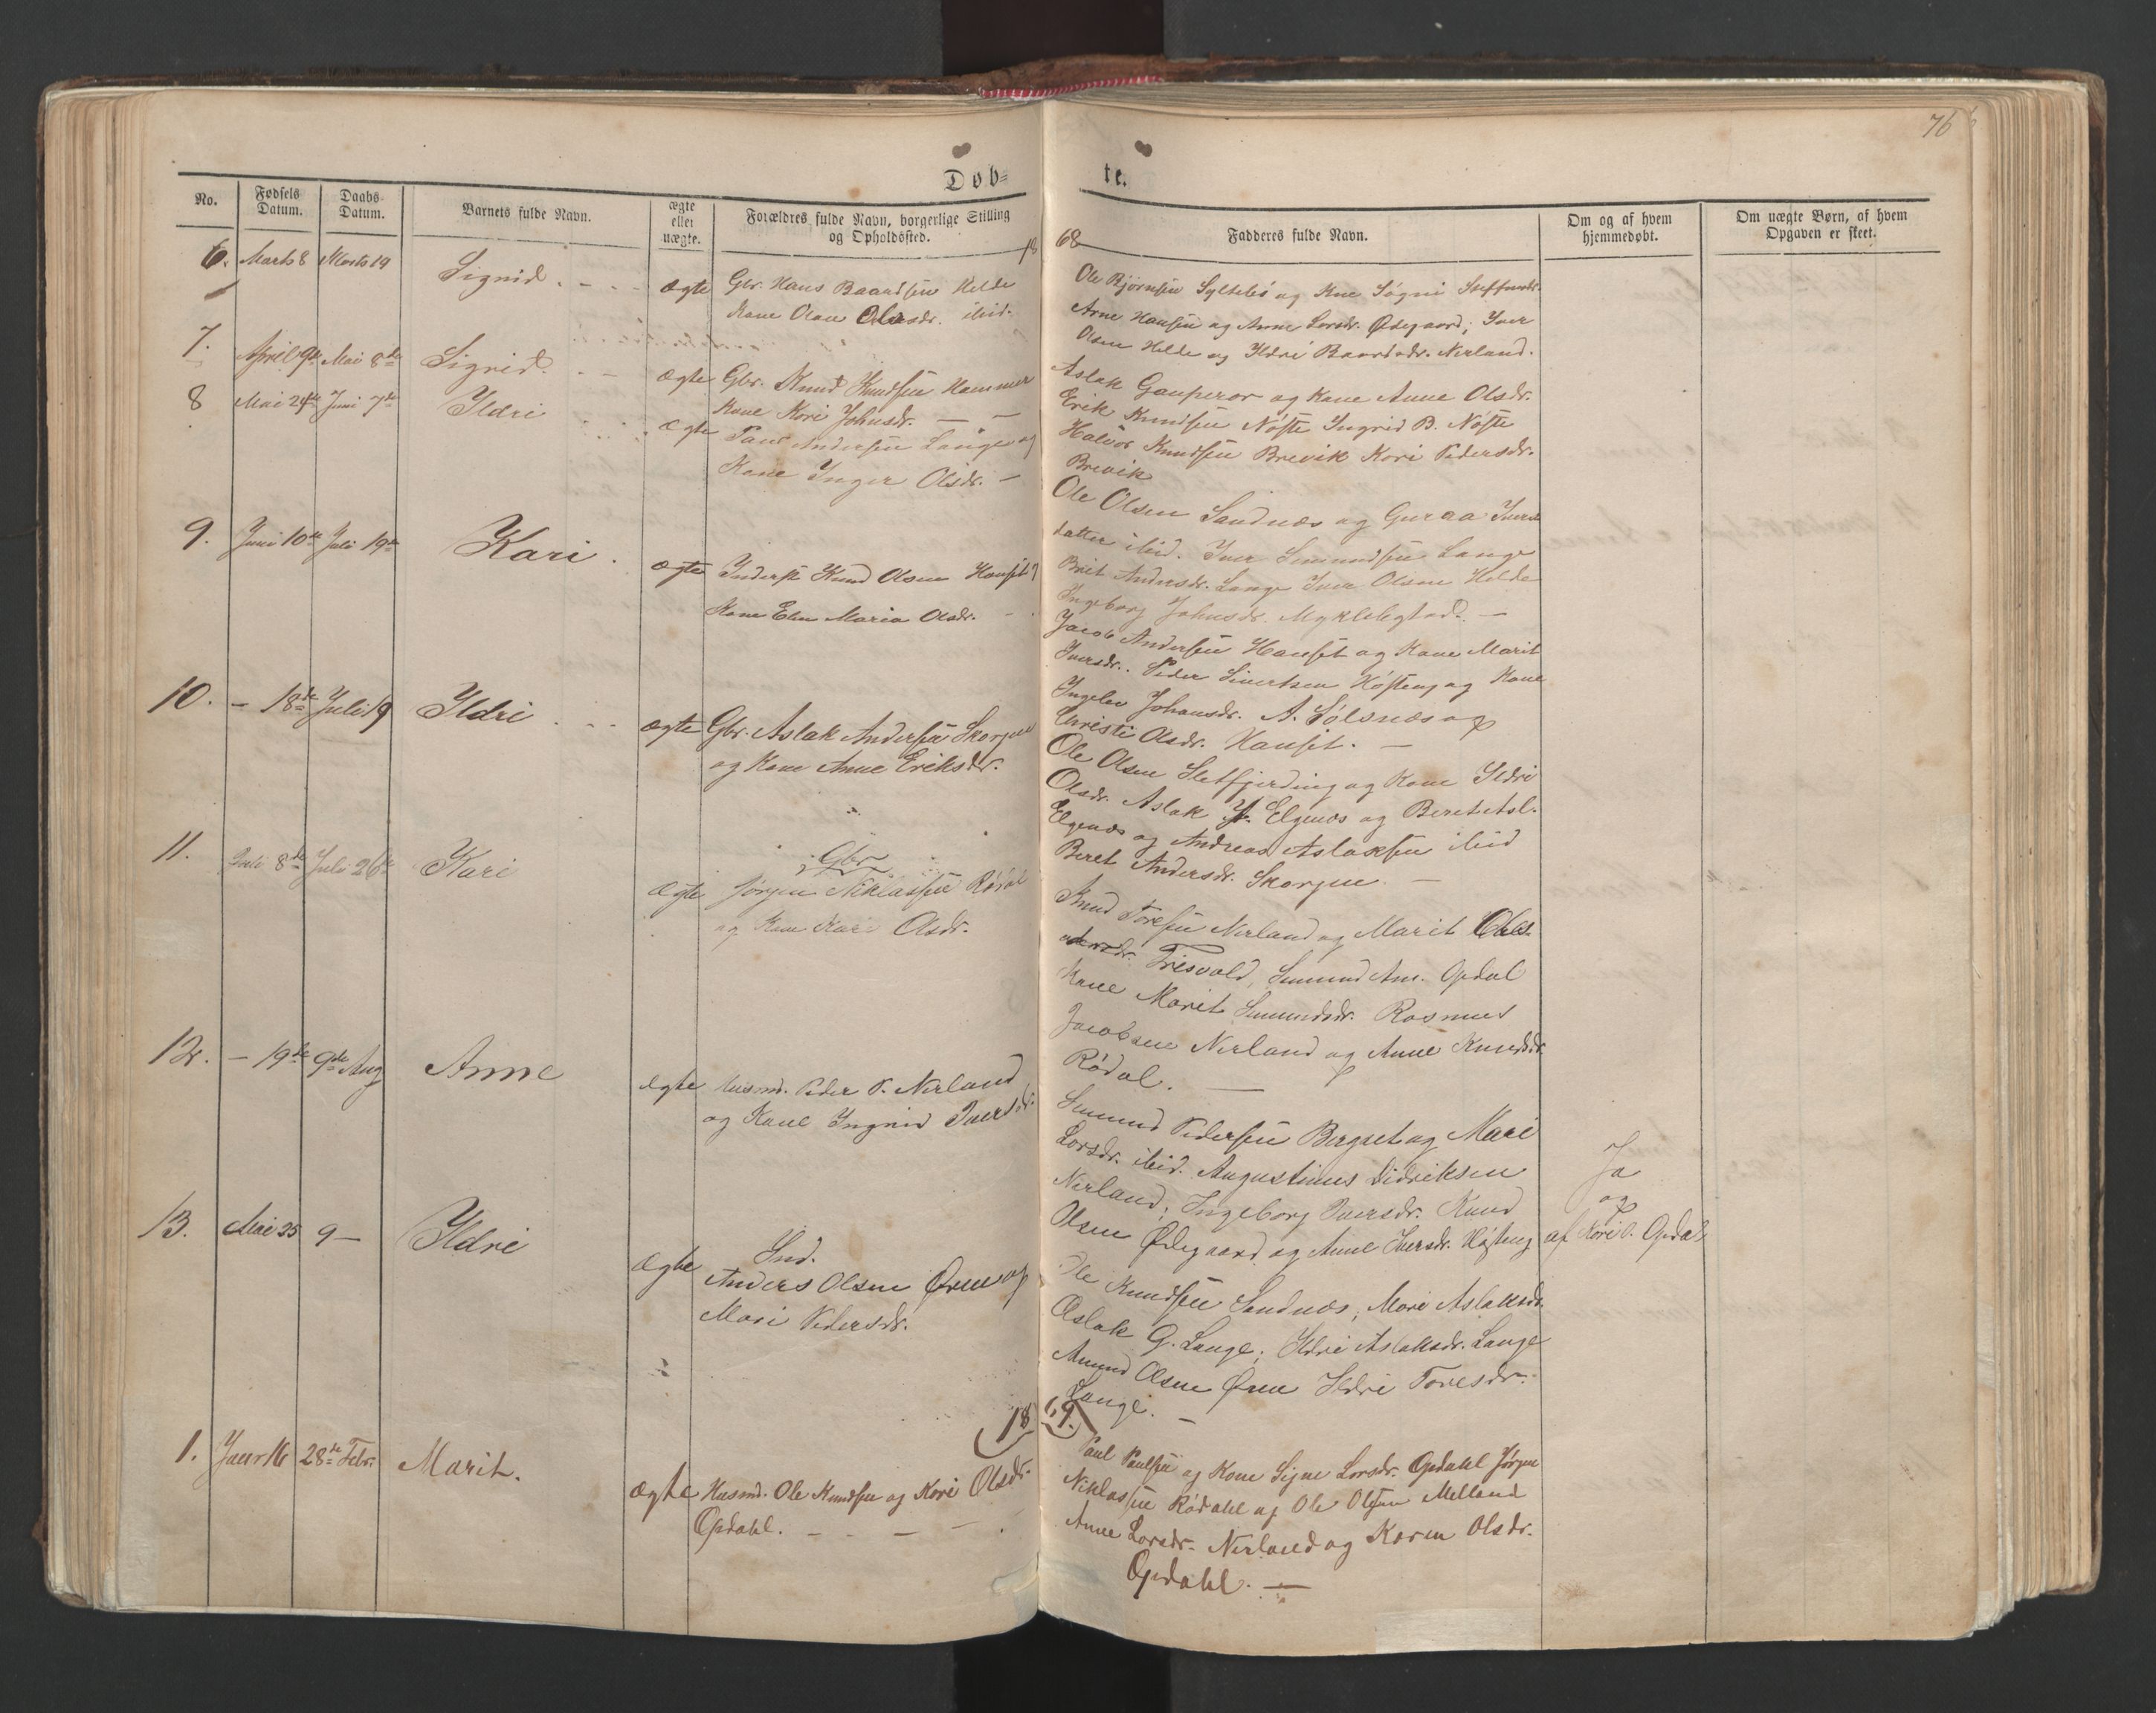 76
Døb=
te.
No.
Fødsels Datum.
Daabs-Datum.
Barnets fulde Navn.
ægte eller uægte.
Forældres fulde Navn, borgerlige Stilling og Opholdssted.
Fadderes fulde Navn.
Om og af hvem hjemmedøbt.
Om uægte Børn, af hvem Opgaven er skeet.
18 68
6. Marts 8 Marts 19 Signid. ægte Gbr. Hans Baardsen Helde
Kone Olau Olsdr. ibid.
Ole Bjørnsen Syltebø og Kne Søgni Steffensdr.
Arne Hansen og Anne Larsdr. Ødegaard; Iver
Olsen Helde og Ildri Baardsdr. Nerland.
7. April 9de Mai 8de Sigrid. ægte Gbr. Knud Knudsen Hammer
Kone Kari Johnsdr.
Aslak Gauperor og Kone Anne Olsdr.
Erik Knudsen Nøste Ingrid B. Nøste
Halvor Knudsen Brevik Kari Pedersdr.
Brevik
8 Mai 24de Juni 7de Ildri ægte Paul Andersen Lange og
Kone Inger Olsdr. -
Ole Olsen Sandnæs og Guraa Ivers
datter ibid. Iver Simundsen Lange
Brit Andersdr. Lange Iver Olsen Helde
Ingeborg Johnsdr. Myklebostad. -
9. Juni 10de Juli 19de Kari. ægte Inderst Knud Olsen Hanset
Kone Elen Maria Olsdr. -
Jacob Andersen Hanset og Kone Marit
Iversdr. Peder Sivertsen Høsteng og Kone
Ingelev Johansdr. A. Sølsnæs og
Christi Olsdr. Hanset. -
10. - 18de Juli 19 Ildri ægte Gbr. Aslak Andersen Skorgen
og Kone Anne Eriksdr.
Ole Olsen Sletfjerding og Kone Ildri
Olsdr. Aslak Elgenæs og Beret Asl.
Elgenæs og Andreas Aslaksen ibid
Beret Andersdr. Skorgen -
11. Juli 8de Juli 26de Kari ægte Gbr
Jørgen Niklassen Rødal
og Kone Kari Olsdr.
Knud Toresen Nerland og Marit
Tresvold, Simund Am. Opdal
Kone Marit Simundsdr. Rasmus
Jacobsen Nerland og Anne Knudsdr.
Rødal. -
12. - 19de 9de Aug Anne ægte Husmd. Peder P. Nerland
og Kone Ingrid Iversdr.
Simund Pedersen Bergset og Mari
Larsdr. ibid. Augustinus Didriksen
Nerland; Ingeborg Iversdr. Knud
Olsen Ødegaard og Anne Iversdr. Høsteng
Ja
og
af Kari O. Opdal
13. Mai 25 9 - Ildri ægte Ind.
Anders Olsen Øren og
Mari Pedersdr.
Ole Knudsen Sandnæs, Mari Aslaksdr.
Aslak G. Lange; Ildri Aslaksdr. Lange
Amund Olsen Øren Ildri Toresdr.
Lange. -
18 69.
1. Januar 16 28de Febr. Marit. ægte Husmd. Ole Knudsen og Kari Olsdr.
Opdahl. - - - -
Paul Paulsen og Kone Signe Larsdr. Opdahl Jørgen
Niklassen Rødahl og Ole Olsen Melland
Anne Larsdr. Nerland og Karen Olsdr.
Opdahl. -